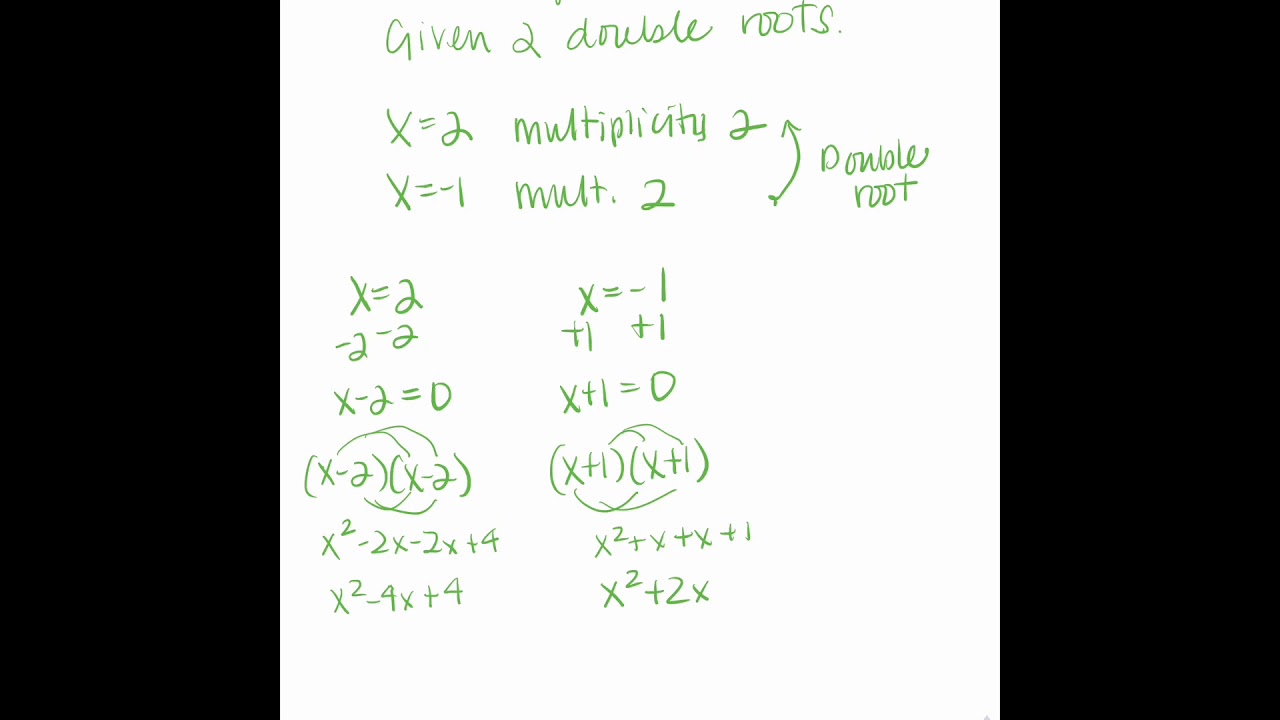 Given 2 double roots.
X=2 multiplicity 2
X=-1 mult. 2
Double
root
X=2 x=-1
-2 -2 +1 +1
x-2=0 x+1=0
(x-2)(x-2) (x+1)(x+1)
x²-2x-2x+4 x²+x+x+1
x²-4x+4 x²+2x